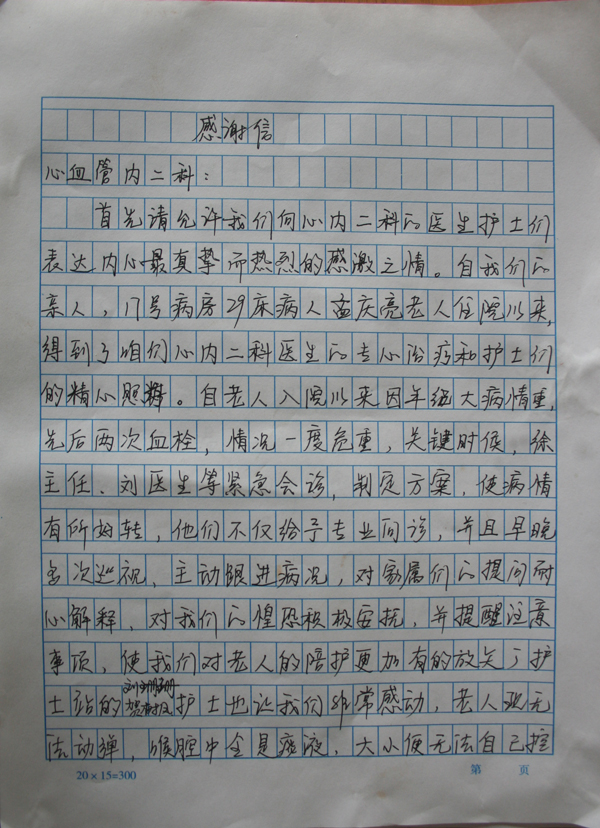 感谢信
心血管内二科：
首先请允许我们向心内二科的医生护士们
表达内心最真挚而热烈的感激之情。自我们的
亲人，17号病房29床病人孟庆亮老人住院以来，
得到了咱们心内二科医生的专心治疗和护士们
的精心照料。自老人入院以来因年纪大病情重，
先后两次血栓，情况一度危重，关键时候，徐
主任、刘医生等紧急会诊，制定方案，使病情
有所好转，他们不仅给予专业问诊，并且早晚
多次巡视，主动跟进病况，对家属们的提问耐
心解释，对我们的惶恐积极安抚，并提醒注意
事项，使我们对老人的陪护更加有的放矢了护
士站的护士也让我们非常感动，老人现无
法动弹，喉腔中全是痰液，大小便无法自己控
20×15=300
第 页